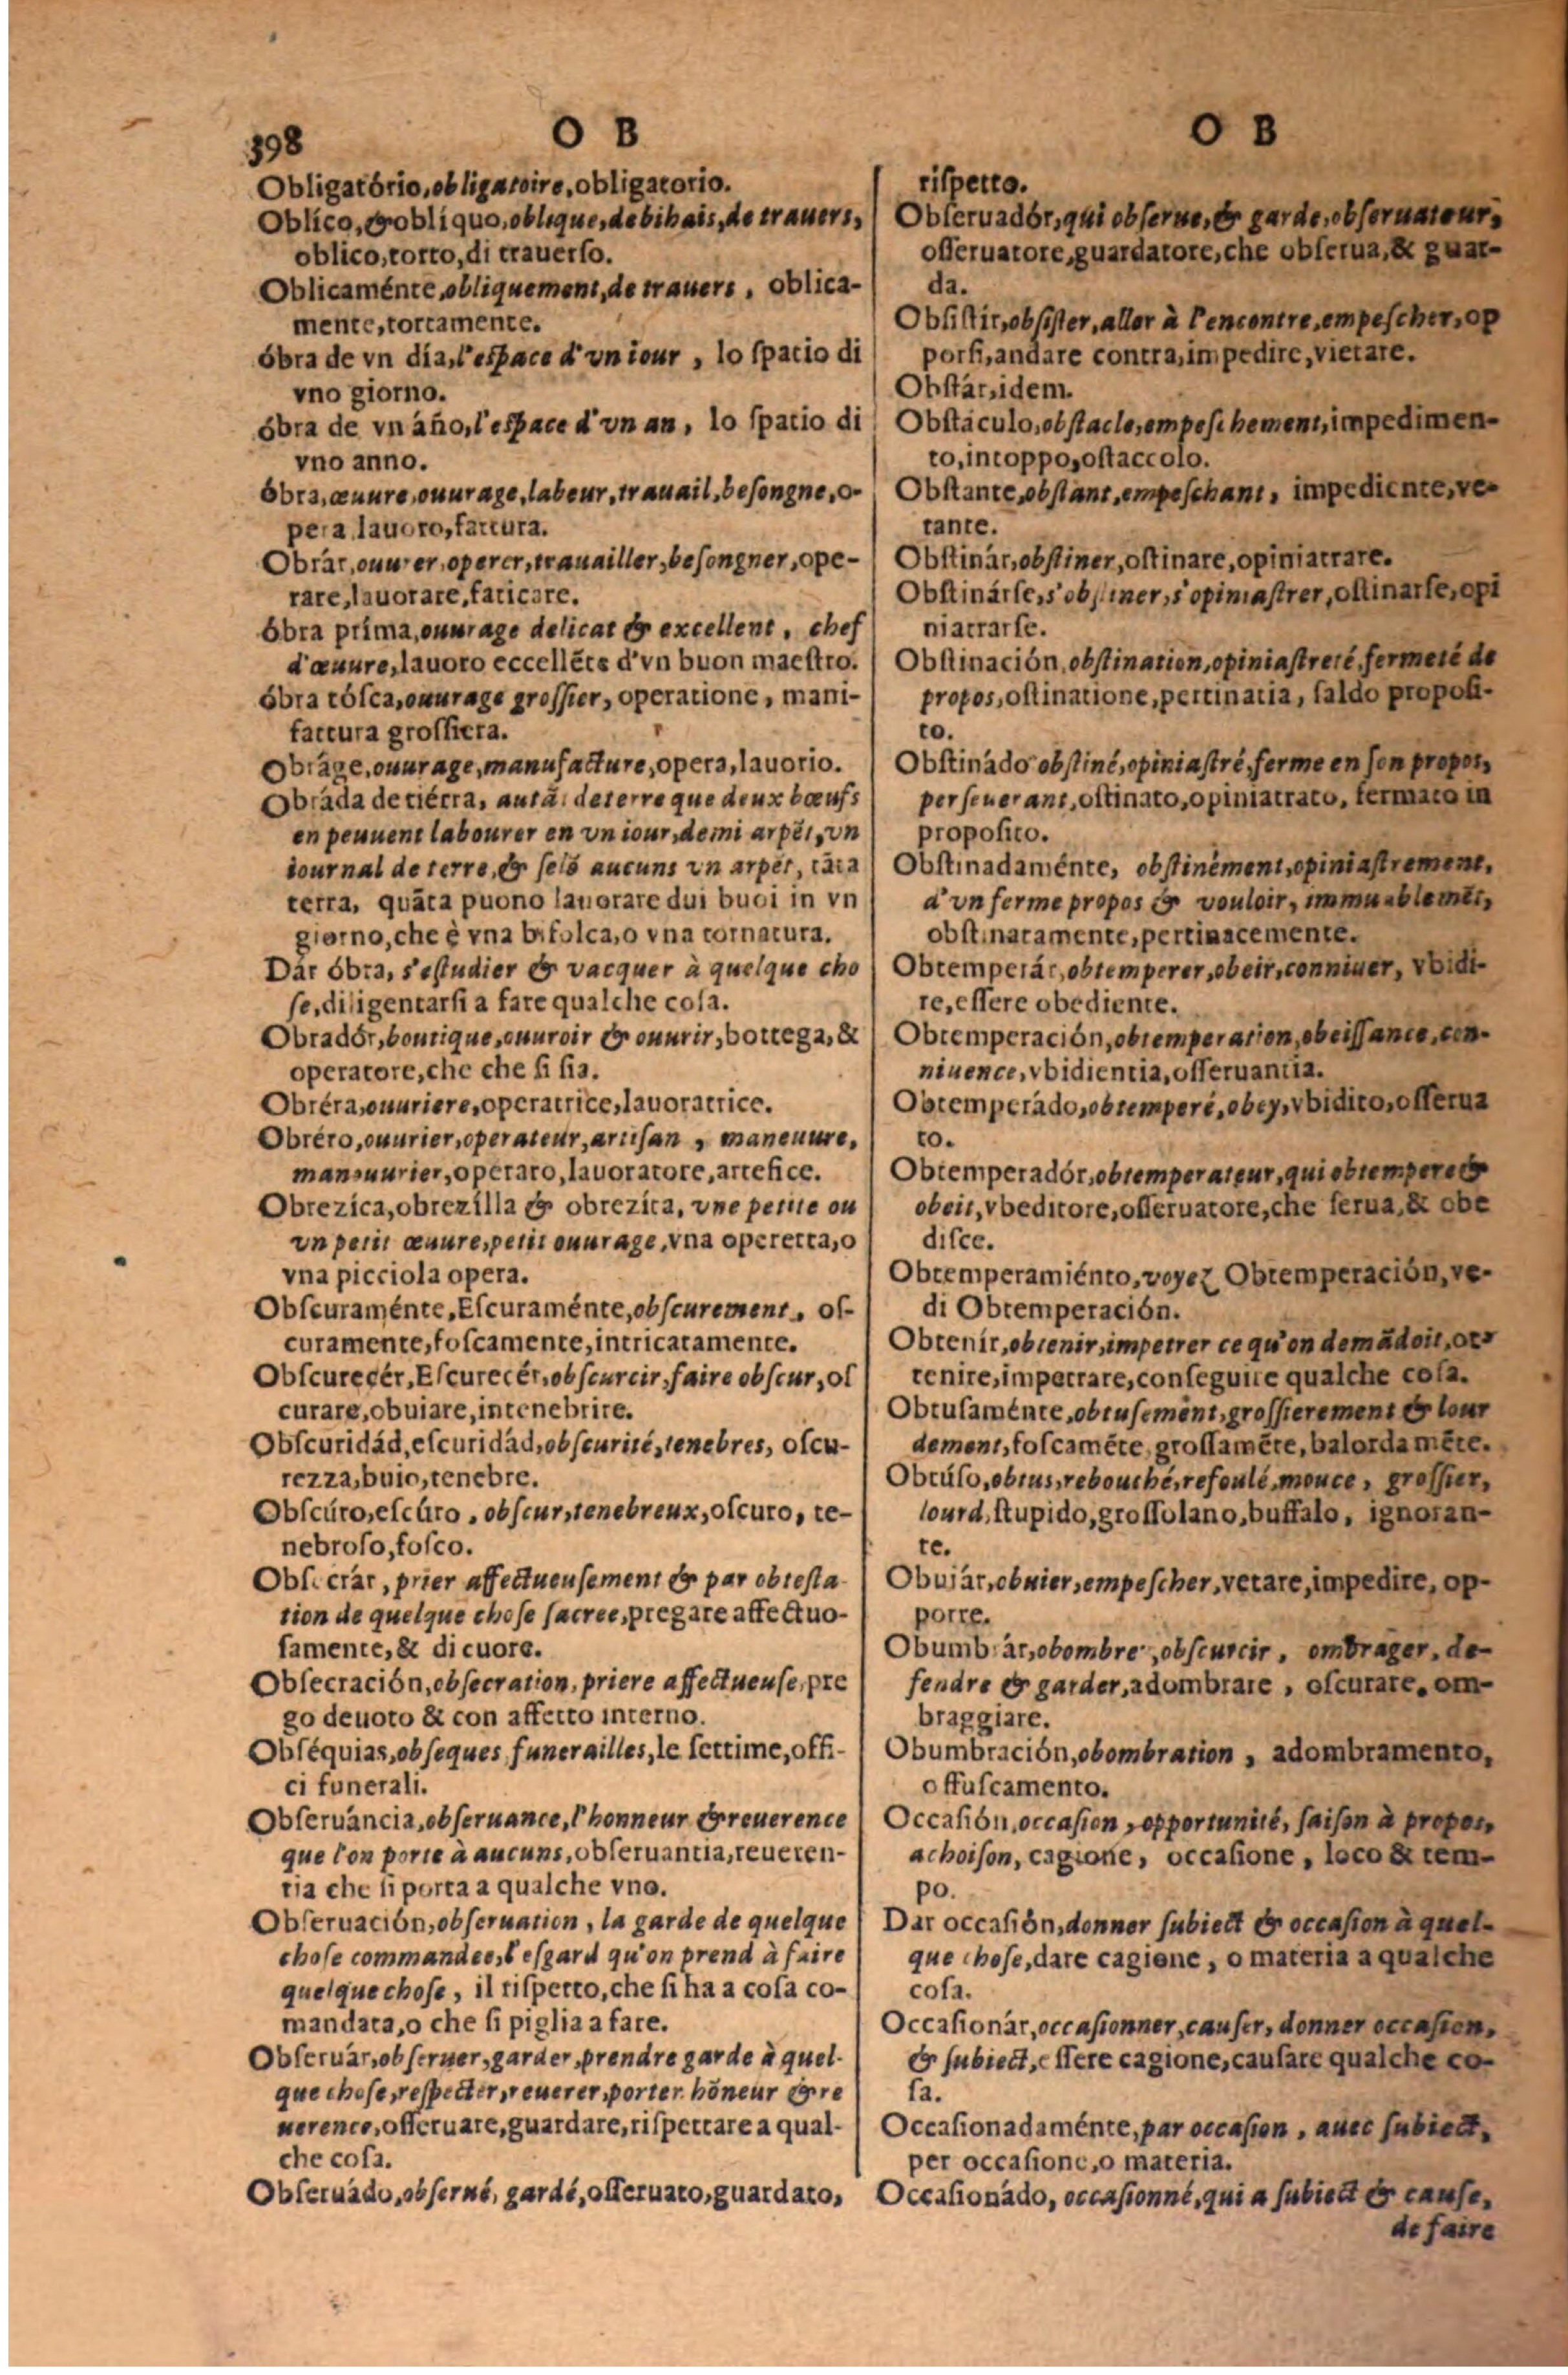 398
O B
Obligatório, obligatoire, obligatorio.
Oblíco, & oblíquo, oblique, de bihais, de trauers,
oblico, torto, di trauerſo.
Oblicaménte, obliquement, de trauers, oblica-
mente, tortamente.
óbra de vn día, l'eſpace d'vn iour, lo ſpatio di
vno giorno.
óbra de vn áño, l'eſpace d'vn an, lo ſpatio di
vno anno.
óbra, œuure, ouurage, labeur, trauail, beſongne, o-
pera, lauoro, fattura.
Obrár, ouurer, operer, trauailler, beſongner, ope-
rare, lauorare, faticare.
óbra príma, ouurage delicat & excellent, chef
d'œuure, lauoro eccellẽte d'vn buon maeſtro.
óbra tóſca, ouurage groſſier, operatione, mani-
fattura groſſiera.
Obráge, ouurage, manufacture, opera, lauorio.
Obráda de tiérra, autãt de terre que deux bœufs
en peuuent labourer en vn iour, demi arpẽt, vn
iournal de terre, & ſelõ aucuns vn arpẽt, tãta
terra, quãta puono lauorare dui buoi in vn
giorno, che è vna bifolca, o vna tornatura.
Dár óbra, s'eſtudier & vacquer à quelque cho
ſe, diligentarſi a fare qualche coſa.
Obradór, boutique, ouuroir & ouurir, bottega, &
operatore, che che ſi ſia.
Obréra, ouuriere, operatrice, lauoratrice.
Obréro, ouurier, operateur, artiſan, maneuure,
manouurier, operaro, lauoratore, artefice.
Obrezíca, obrezílla & obrezíta, vne petite ou
vn petit œuure, petit ouurage, vna operetta, o
vna picciola opera.
Obſcuraménte, Eſcuraménte, obſcurement, oſ-
curamente, foſcamente, intricatamente.
Obſcurecér, Eſcurecér, obſcurcir, faire obſcur, oſ
curare, obuiare, intenebrire.
Obſcuridád, eſcuridád, obſcurité, tenebres, oſcu-
rezza, buio, tenebre.
Obſcúro, eſcúro, obſcur, tenebreux, oſcuro, te-
nebroſo, foſco.
Obſecrár, prier affectueuſement & par obteſta-
tion de quelque choſe ſacree, pregare affectuo-
ſamente, & di cuore.
Obſecración, obſecration, priere affectueuſe, pre
go deuoto & con affetto interno.
Obſéquias, obſeques, funerailles, le ſettime, offi-
ci funerali.
Obſeruáncia, obſeruance, l'honneur & reuerence
que l'on porte à aucuns, obſeruantia, reueren-
tia che ſi porta a qualche vno.
Obſeruación, obſeruation, la garde de quelque
choſe commandee, l'eſgard qu'on prend à faire
quelque choſe, il riſpetto, che ſi ha a coſa co-
mandata, o che ſi piglia a fare.
Obſeruár, obſeruer, garder, prendre garde à quel-
que choſe, reſpecter, reuerer, porter hõneur & re
uerence, oſſeruare, guardare, riſpettare a qual-
che coſa.
Obſeruádo, obſerué, gardé, oſſeruato, guardato,
O B
riſpetto.
Obſeruadór, qui obſerue, & garde, obſeruateur,
oſſeruatore, guardatore, che obſerua, & guar-
da.
Obſiſtir, obſiſter, aller à l'encontre, empeſcher, op
porſi, andare contra, impedire, vietare.
Obſtár, idem.
Obſtáculo, obſtacle, empeſchement, impedimen-
to, intoppo, oſtaccolo.
Obſtante, obſtant, empeſchant, impediente, ve-
tante.
Obſtinár, obſtiner, oſtinare, opiniatrare.
Obſtinárſe, s'obſtiner, s'opiniaſtrer, oſtinarſe, opi
niatrarſe.
Obſtinación, obſtination, opiniaſtreté, fermeté de
propos, oſtinatione, pertinatia, ſaldo propoſi-
to.
Obſtinádo obſtiné, opiniaſtré, ferme en ſon propos,
perſeuerant, oſtinato, opiniatrato, fermato in
propoſito.
Obſtinadaménte, obſtinément, opiniaſtrement,
d'vn ferme propos & vouloir, immuablemẽt,
obſtinatamente, pertinacemente.
Obtemperár, obtemperer, obeir, conniuer, vbidi-
re, eſſere obediente.
Obtemperación, obtemperation, obeiſſance, con-
niuence, vbidientia, oſſeruantia.
Obtemperádo, obtemperé, obey, vbidito, oſſerua
to.
Obtemperadór, obtemperateur, qui obtempere &
obeit, vbeditore, oſſeruatore, che ſerua, & obe
diſce.
Obtemperamiénto, voyez Obtemperación, ve-
di Obtemperación.
Obtenír, obtenir, impetrer ce qu'on demãdoit, ot-
tenire, impetrare, conſeguire qualche coſa.
Obtuſaménte, obtuſement, groſſierement & lour
dement, foſcamẽte, groſſamẽte, balordamẽte.
Obtúſo, obtus, rebouché, refoulé, mouce, groſſier,
lourd, ſtupido, groſſolano, buffalo, ignoran-
te.
Obuiár, obuier, empeſcher, vetare, impedire, op-
porre.
Obumbrár, obombrer, obſcurcir, ombrager, de-
fendre & garder, adombrare, oſcurare, om-
braggiare.
Obumbración, obombration, adombramento,
offuſcamento.
Occaſión, occaſion, opportunité, ſaiſon à propos,
achoiſon, cagione, occaſione, loco & tem-
po.
Dar occaſión, donner ſubiect & occaſion à quel-
que choſe, dare cagione, o materia a qualche
coſa.
Occaſionár, occaſionner, cauſer, donner occaſion,
& ſubiect, eſſere cagione, cauſare qualche co-
ſa.
Occaſionadaménte, par occaſion, auec ſubiect,
per occaſione, o materia.
Occaſionádo, occaſionné, qui a ſubiect & cauſe,
de faire